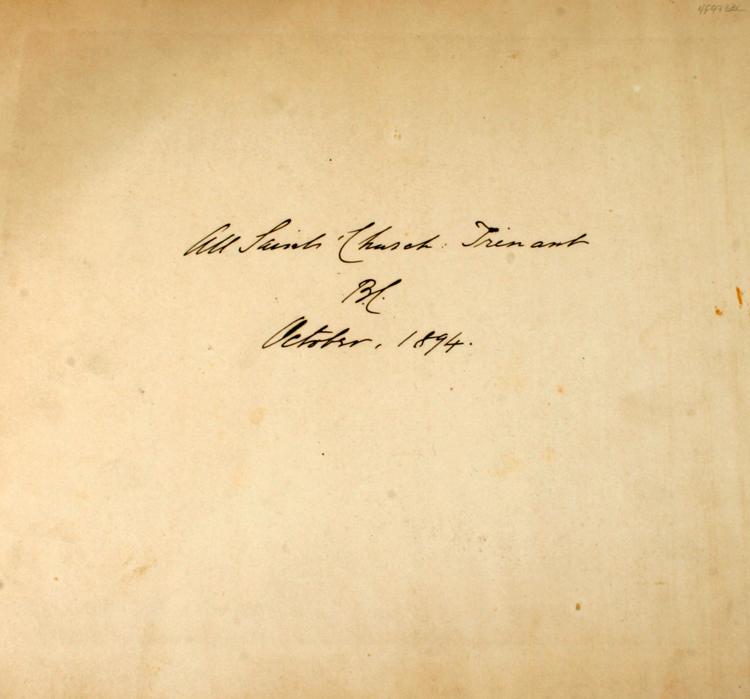 All Saints' Church: Trenant
B.C.
October, 1894.